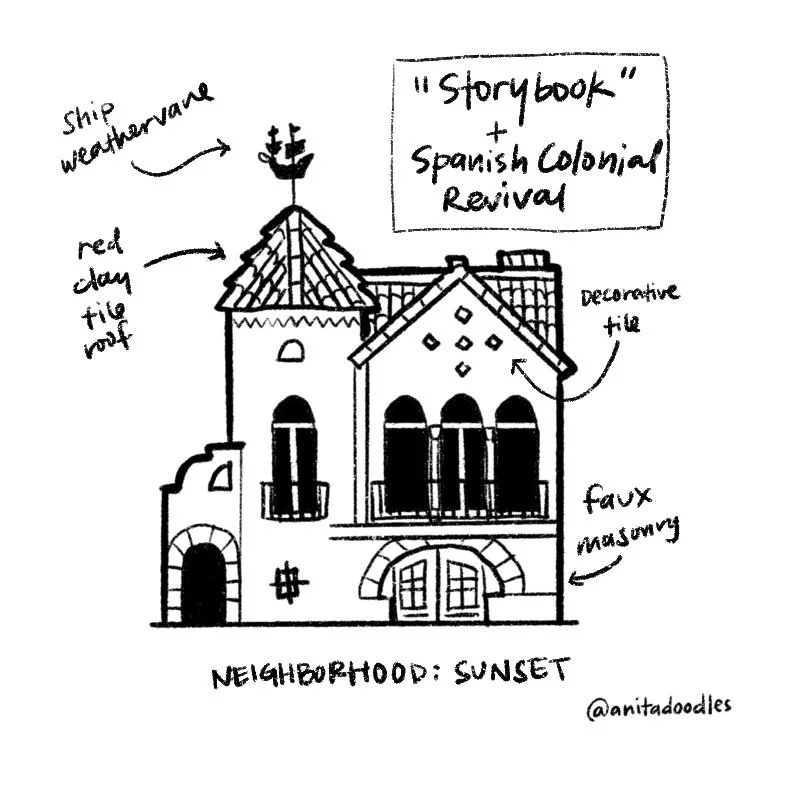 "Storybook"
+
Spanish Colonial
Revival
Ship
weathervane
red
clay
tile
roof
Decorative
tile
faux
masonry
NEIGHBORHOOD: SUNSET
@anitadoodles